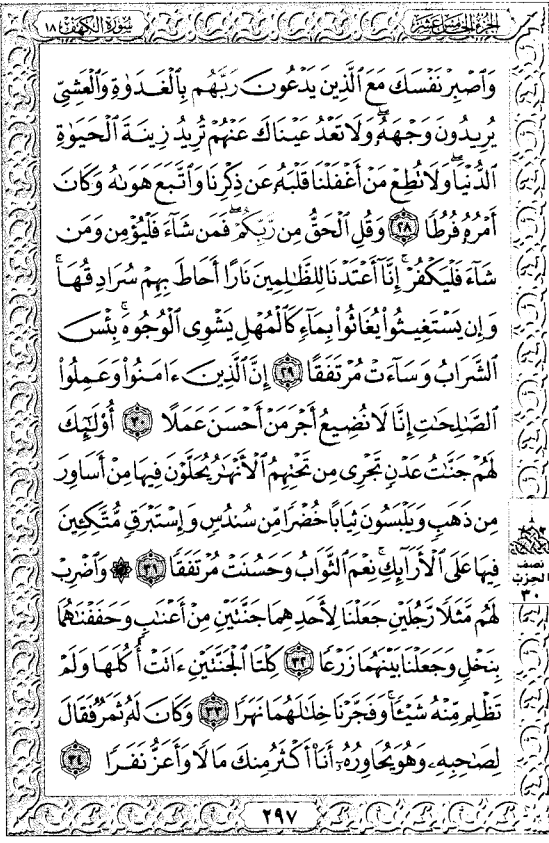 الجزء الخامس عشر
سورة الكهف ١٨
وَٱصْبِرْ نَفْسَكَ مَعَ ٱلَّذِينَ يَدْعُونَ رَبَّهُم بِٱلْغَدَوٰةِ وَٱلْعَشِىِّ
يُرِيدُونَ وَجْهَهُۥ ۖ وَلَا تَعْدُ عَيْنَاكَ عَنْهُمْ تُرِيدُ زِينَةَ ٱلْحَيَوٰةِ
ٱلدُّنْيَا ۖ وَلَا تُطِعْ مَنْ أَغْفَلْنَا قَلْبَهُۥ عَن ذِكْرِنَا وَٱتَّبَعَ هَوَىٰهُ وَكَانَ
أَمْرُهُۥ فُرُطًا ٢٨ وَقُلِ ٱلْحَقُّ مِن رَّبِّكُمْ ۖ فَمَن شَآءَ فَلْيُؤْمِن وَمَن
شَآءَ فَلْيَكْفُرْ ۚ إِنَّآ أَعْتَدْنَا لِلظَّٰلِمِينَ نَارًا أَحَاطَ بِهِمْ سُرَادِقُهَا ۚ
وَإِن يَسْتَغِيثُوا۟ يُغَاثُوا۟ بِمَآءٍ كَٱلْمُهْلِ يَشْوِى ٱلْوُجُوهَ ۚ بِئْسَ
ٱلشَّرَابُ وَسَآءَتْ مُرْتَفَقًا ٢٩ إِنَّ ٱلَّذِينَ ءَامَنُوا۟ وَعَمِلُوا۟
ٱلصَّٰلِحَٰتِ إِنَّا لَا نُضِيعُ أَجْرَ مَنْ أَحْسَنَ عَمَلًا ٣٠ أُو۟لَٰٓئِكَ
لَهُمْ جَنَّٰتُ عَدْنٍ تَجْرِى مِن تَحْتِهِمُ ٱلْأَنْهَٰرُ يُحَلَّوْنَ فِيهَا مِنْ أَسَاوِرَ
مِن ذَهَبٍ وَيَلْبَسُونَ ثِيَابًا خُضْرًا مِّن سُندُسٍ وَإِسْتَبْرَقٍ مُّتَّكِـِٔينَ
فِيهَا عَلَى ٱلْأَرَآئِكِ ۚ نِعْمَ ٱلثَّوَابُ وَحَسُنَتْ مُرْتَفَقًا ٣١ ۞ وَٱضْرِبْ
لَهُم مَّثَلًا رَّجُلَيْنِ جَعَلْنَا لِأَحَدِهِمَا جَنَّتَيْنِ مِنْ أَعْنَٰبٍ وَحَفَفْنَٰهُمَا
بِنَخْلٍ وَجَعَلْنَا بَيْنَهُمَا زَرْعًا ٣٢ كِلْتَا ٱلْجَنَّتَيْنِ ءَاتَتْ أُكُلَهَا وَلَمْ
تَظْلِم مِّنْهُ شَيْـًٔا ۚ وَفَجَّرْنَا خِلَٰلَهُمَا نَهَرًا ٣٣ وَكَانَ لَهُۥ ثَمَرٌ فَقَالَ
لِصَٰحِبِهِۦ وَهُوَ يُحَاوِرُهُۥٓ أَنَا۠ أَكْثَرُ مِنكَ مَالًا وَأَعَزُّ نَفَرًا ٣٤
نصف
الحزب
٣٠
٢٩٧